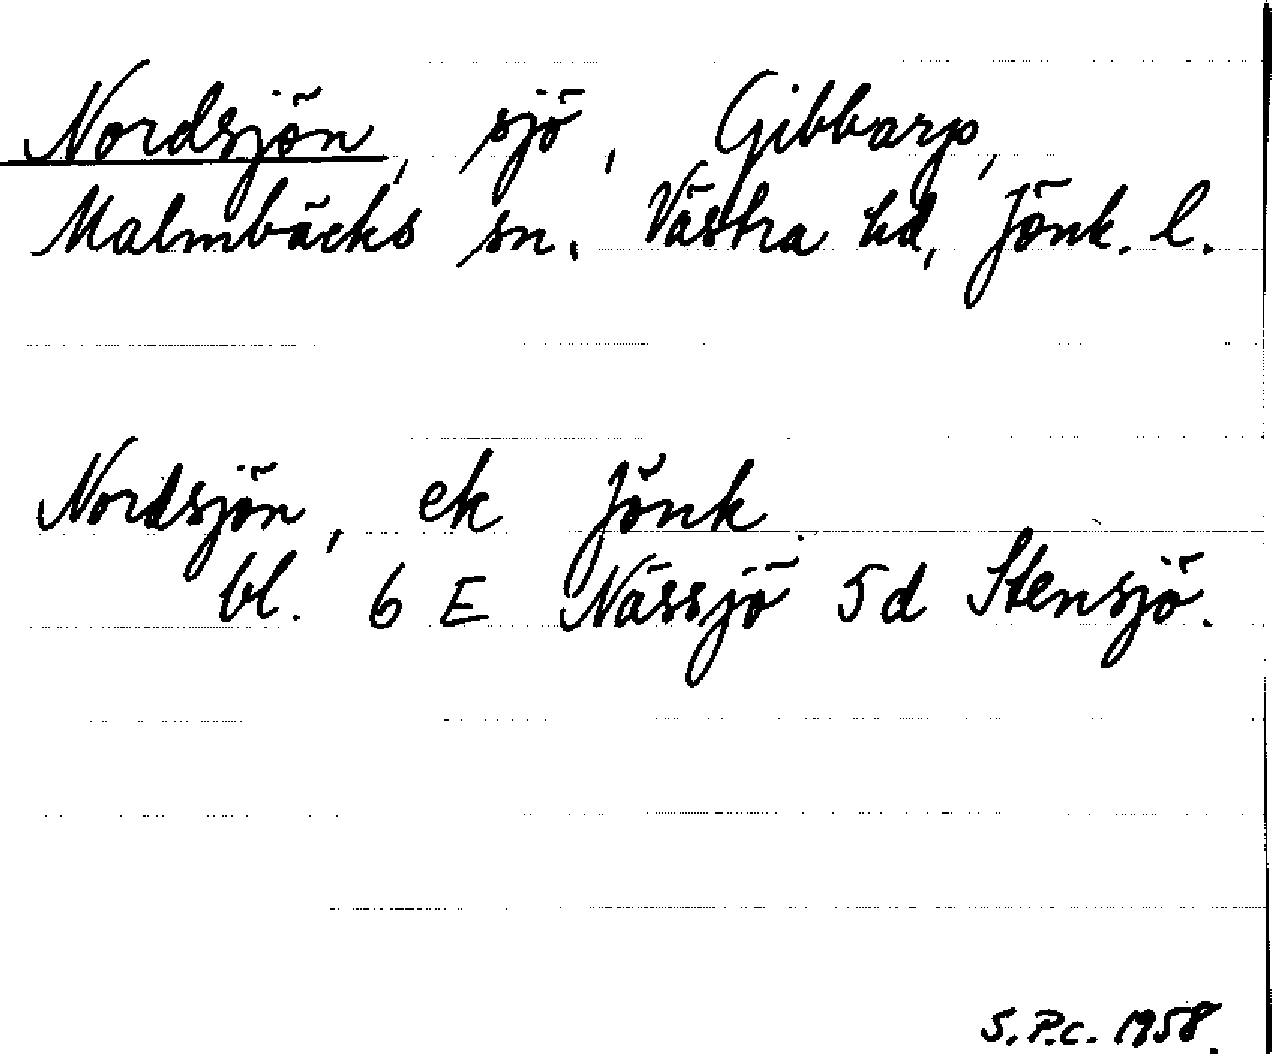 Nordsjön, sjö, Gibbarp,
Malmbäcks sn, Västra hd, Jönk. l.
Nordsjön, ek Jönk.
bl. 6 E Nässjö 5d Stensjö.
S.P.C. 1958.